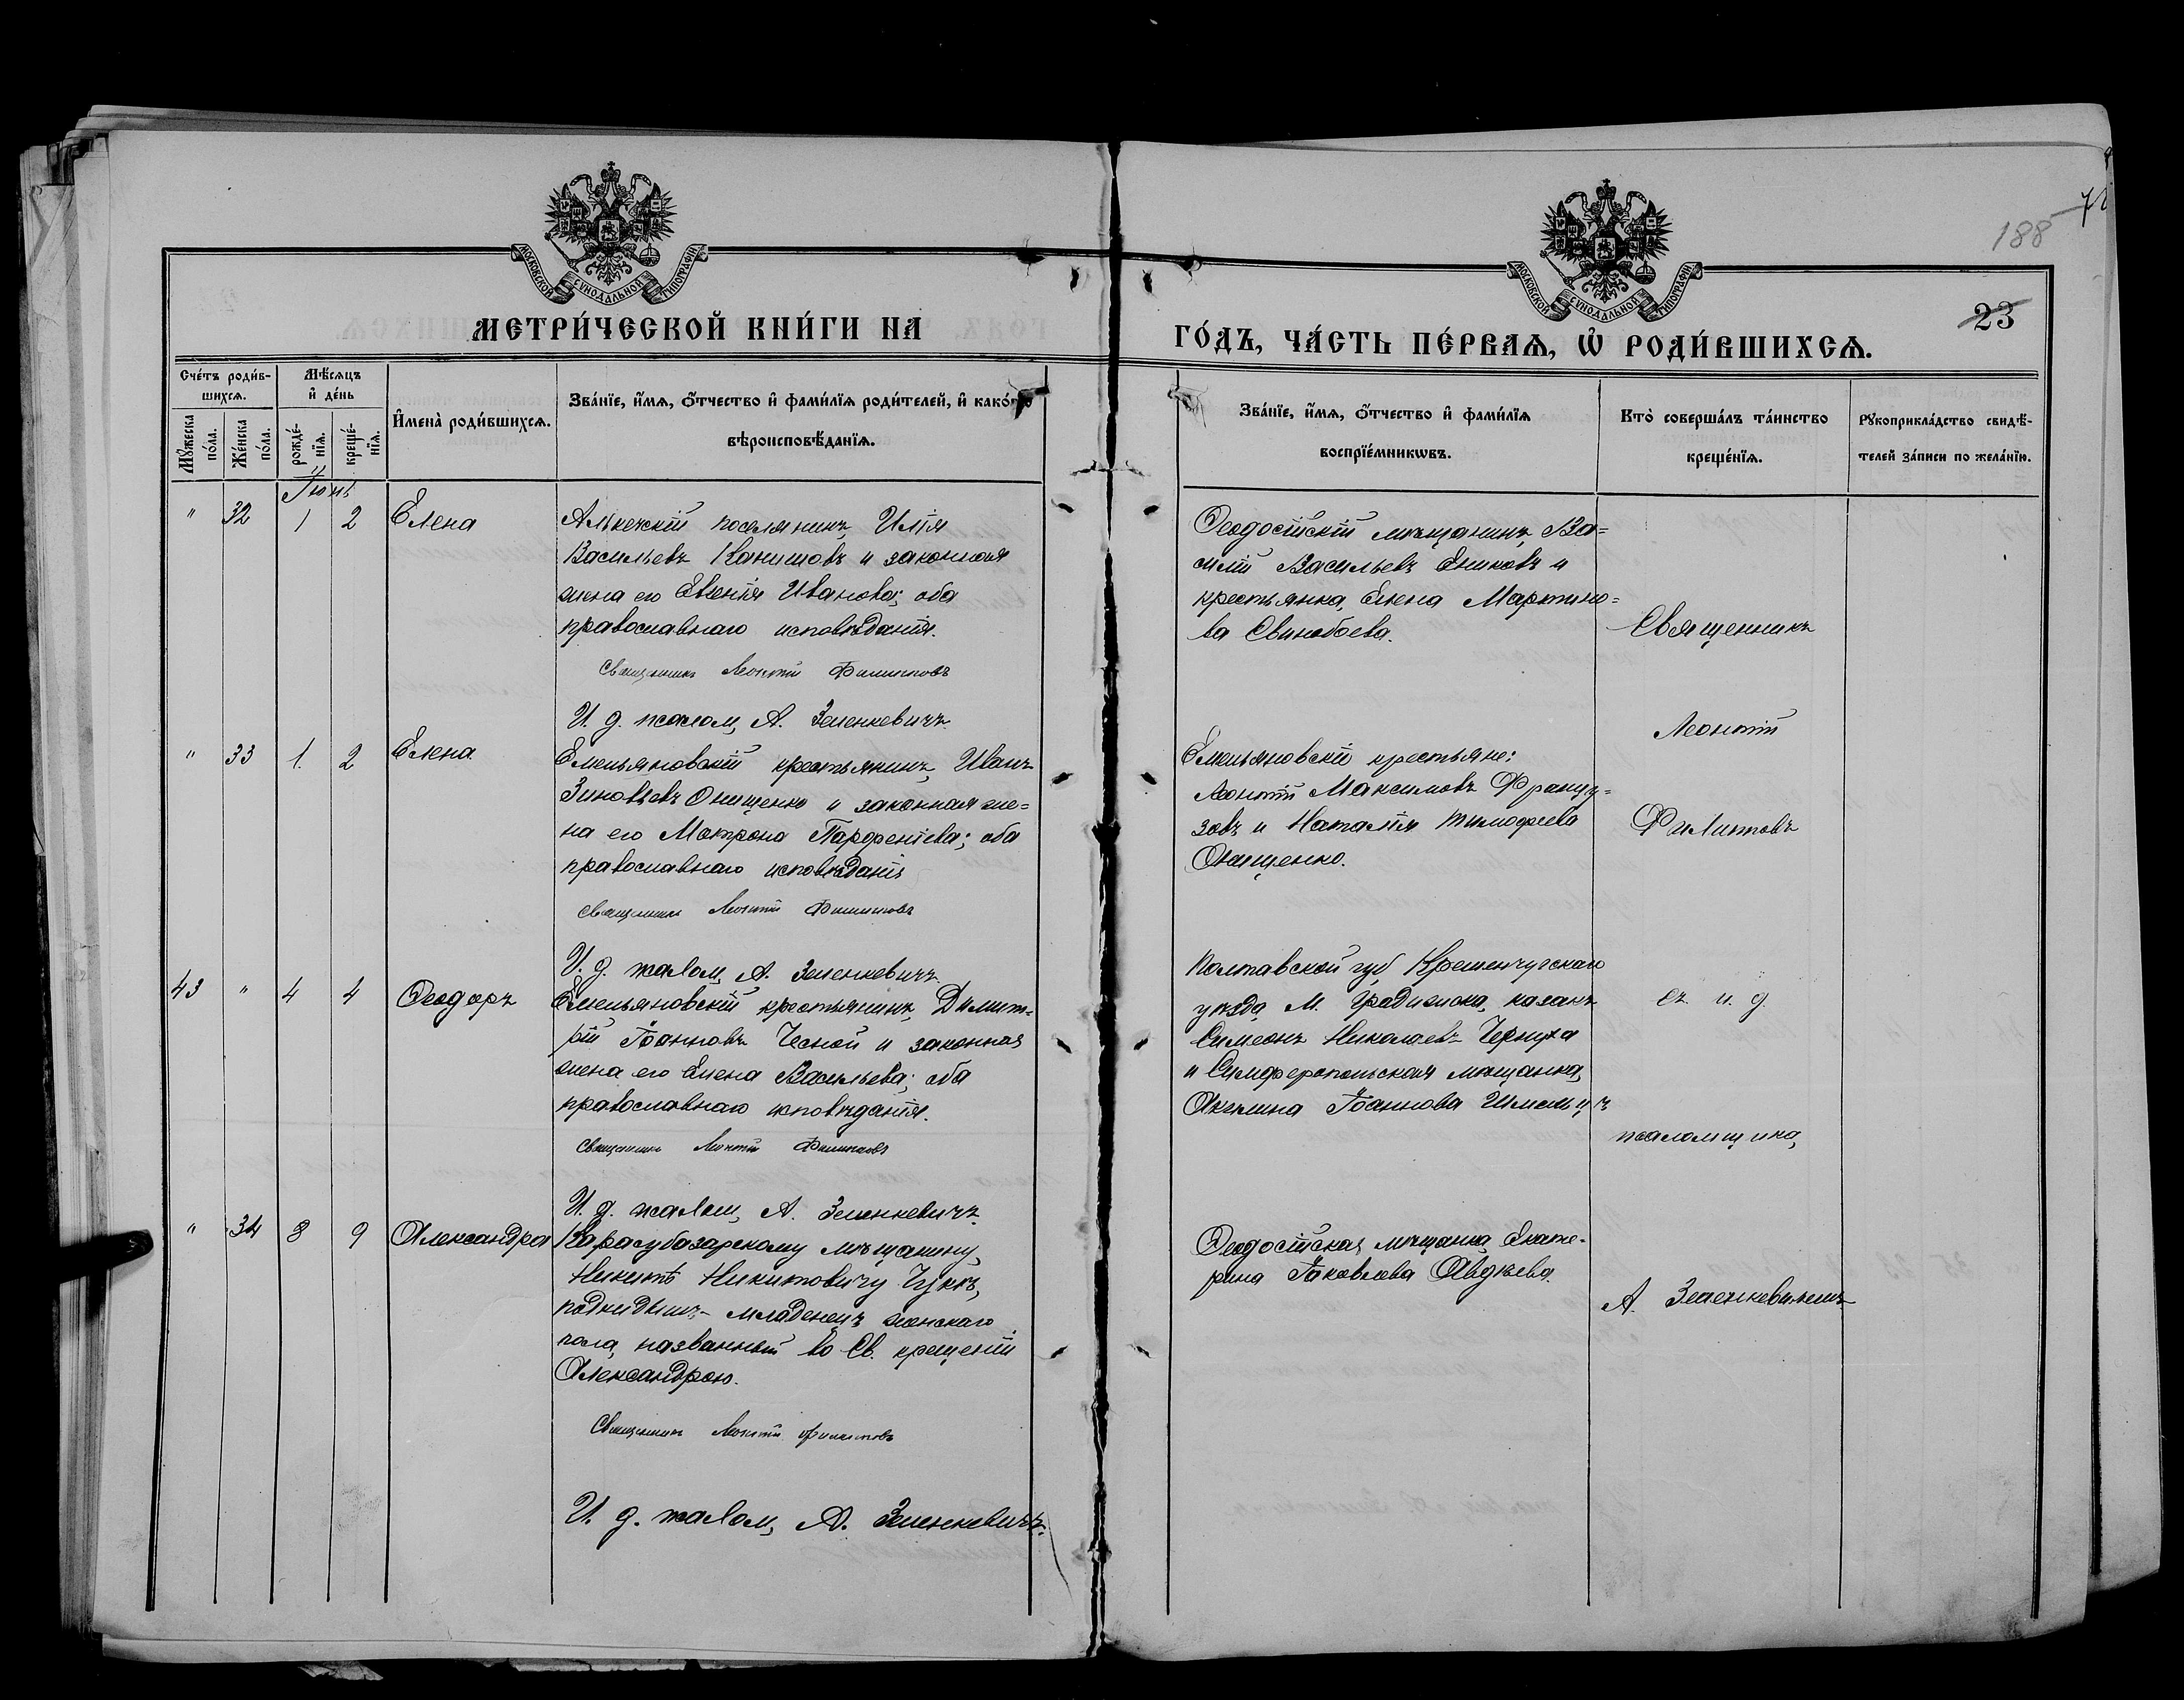 188
23
МОСКОВСКОЙ СѴНОДАЛЬНОЙ ТИПОГРАФІИ
МОСКОВСКОЙ СѴНОДАЛЬНОЙ ТИПОГРАФІИ
МЕТРИ́ЧЕСКОЙ КНИ́ГИ НА
ГО́ДЪ, ЧА́СТЬ ПЕ́РВАѦ, Ѡ҆ РОДИ́ВШИХСѦ.
Сче́тъ роди́в-
шихсѧ.
Мѣ́сяцъ
и҆ де́нь
Мꙋ́жеска по́ла.
Же́нска по́ла.
рожде́-
нїѧ.
креще́-
нїѧ.
И҆мена̀ роди́вшихсѧ.
Зва́нїе, и҆́мѧ, ѻ҆́тчество и҆ фами́лїѧ роди́телей, и҆ како́гѡ
вѣроисповѣ́данїѧ.
Зва́нїе, и҆́мѧ, ѻ҆́тчество и҆ фами́лїѧ
воспрїе́мникѡвъ.
Кто̀ соверша́лъ та́инство
креще́нїѧ.
Рꙋкоприкла́дство свидѣ́-
телей за́писи по жела́нїю.
Іюнь
" 32 1 2 Елена
поселянинъ, Илія
Васильевъ и законная
жена его Евгенія Иванова; оба
православнаго исповѣданія.
Священникъ Леонтій Филипповъ
И. д. псалом, А. Зеленкевичъ.
Ѳеодосійскій мѣщанинъ, Ва=
силій Васильевъ Ениковъ и
крестьянка, Елена Мартино=
ва Свинобоева.
Священникъ
Леонтій
Филиповъ
съ и. д.
псаломщика,
А. Зеленкевичемъ
" 33 1. 2 Елена.
Емельяновскій крестьянинъ, Иванъ
Зиновьевъ Онищенко и законная же=
на его Матрона Парфеніева; оба
православнаго исповѣданія
Священникъ Леонтій Филипповъ
И. д. псалом, А. Зеленкевичъ.
Емельяновскіе крестьяне:
Леонтій Максимовъ Францу=
зовъ и Наталія Тимофеева
Онищенко.
43 " 4 4 Ѳеодоръ
Емельяновскій крестьянинъ, Димит=
рій Іоанновъ Чесной и законная
жена его Елена Васильева; оба
православнаго исповѣданія.
Священникъ Леонтій Филипповъ
И. д. псалом, А. Зеленкевичъ.
Полтавской губ Кременчугскаго
уѣзда, М. Градижска, казакъ
Симеонъ Николаевъ Чернуха
и Симферопольская мѣщанка,
Акилина Іоаннова
" 34 8 9 Александра
Карасубазарскому мѣщанину,
Никитѣ Никитовичу
подкидышъ - младенецъ женскаго
пола, названный во Св. крещеніи
Александрою.
Священникъ Леонтій Филипповъ
И. д. псалом, А. Зеленкевичъ.
Ѳеодосійская мѣщанка, Екате-
рина Іаковлева Авдѣева.